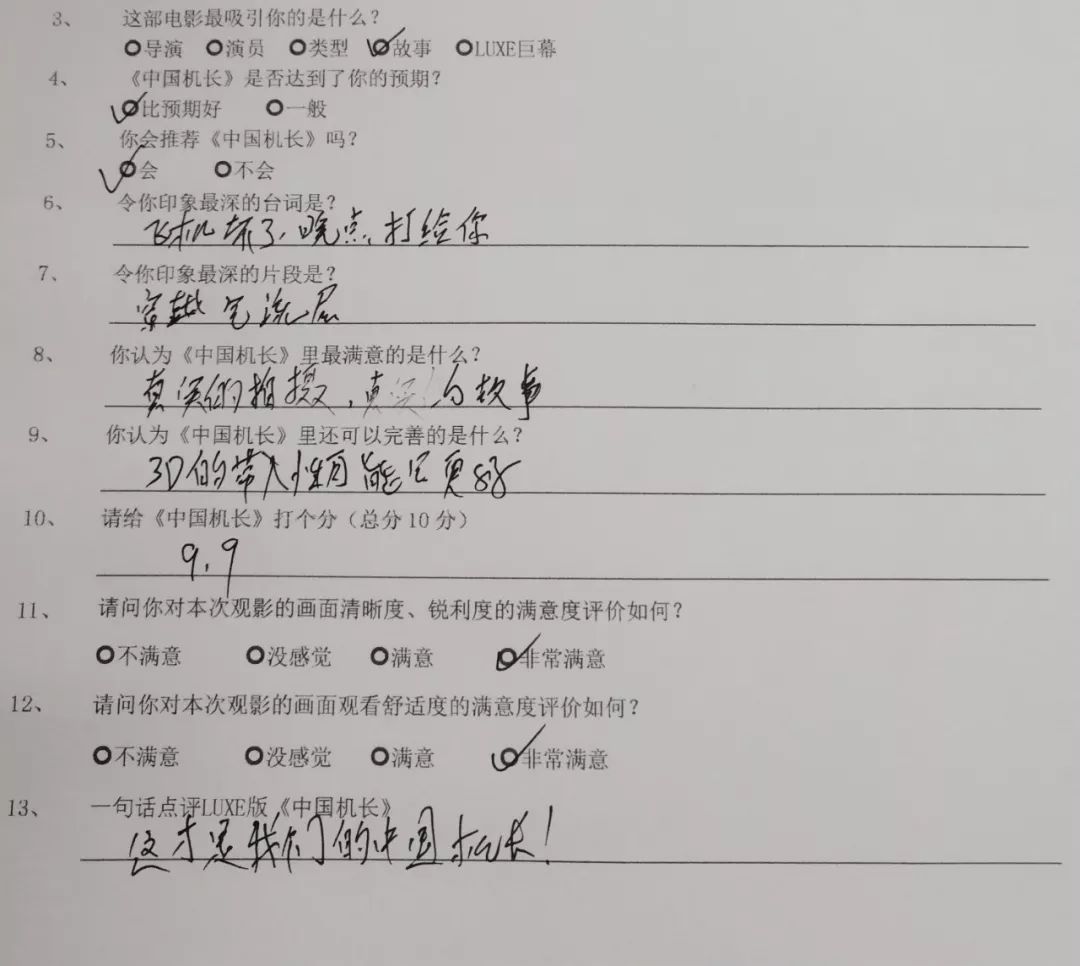 3、 这部电影最吸引你的是什么？
导演 演员 类型 故事 LUXE巨幕
4、 《中国机长》是否达到了你的预期？
比预期好 一般
5、 你会推荐《中国机长》吗？
会 不会
6、 令你印象最深的台词是？
飞机坏了，晚点打给你
7、 令你印象最深的片段是？
穿越气流层
8、 你认为《中国机长》里最满意的是什么？
真实的拍摄，真实的故事
9、 你认为《中国机长》里还可以完善的是什么？
3D的带入性能更好
10、 请给《中国机长》打个分（总分10分）
9.9
11、 请问你对本次观影的画面清晰度、锐利度的满意度评价如何？
不满意 没感觉 满意 非常满意
12、 请问你对本次观影的画面观看舒适度的满意度评价如何？
不满意 没感觉 满意 非常满意
13、 一句话点评LUXE版《中国机长》
这才是我们的中国机长！